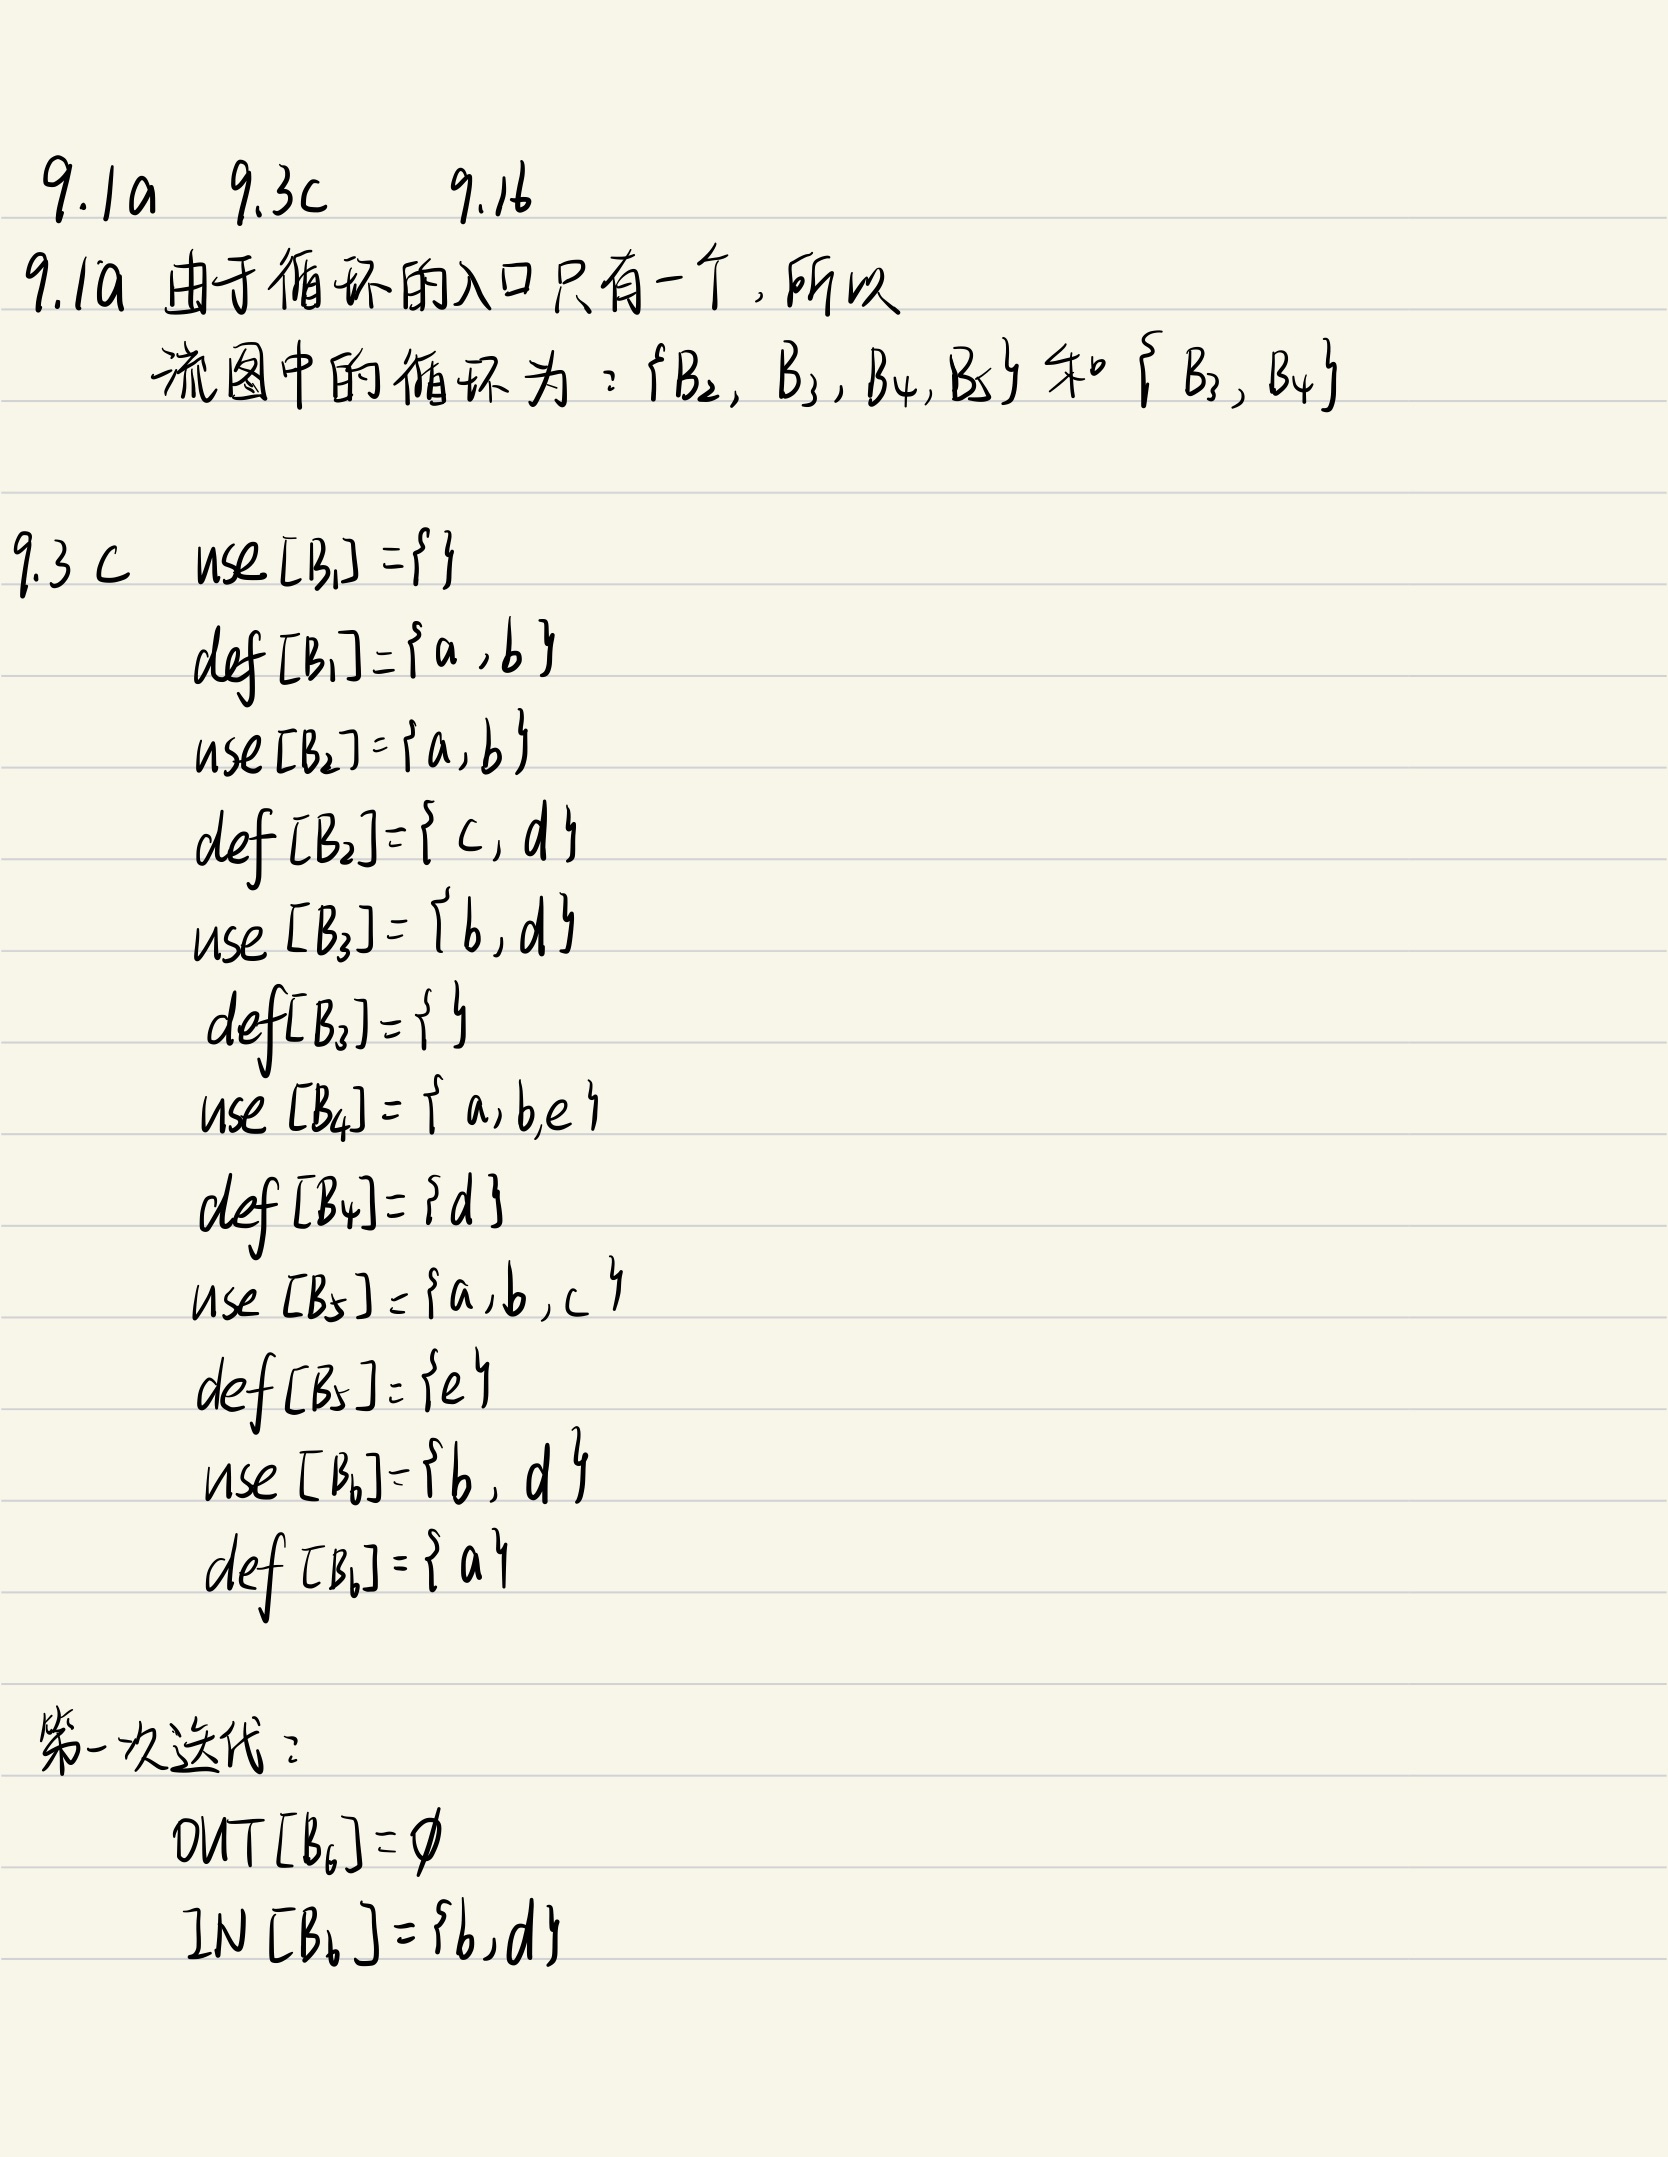 9.1a 9.3c 9.16
9.1a 由于循环的入口只有一个，所以
流图中的循环为：{B2, B3, B4, B5} 和 {B3, B4}
9.3 c use[B1]={}
def[B1]={a,b}
use[B2]={a,b}
def[B2]={c,d}
use[B3]={b,d}
def[B3]={}
use[B4]={a,b,e}
def[B4]={d}
use[B5]={a,b,c}
def[B5]={e}
use[B6]={b,d}
def[B6]={a}
第一次迭代：
OUT[B6]=∅
IN[B6]={b,d}